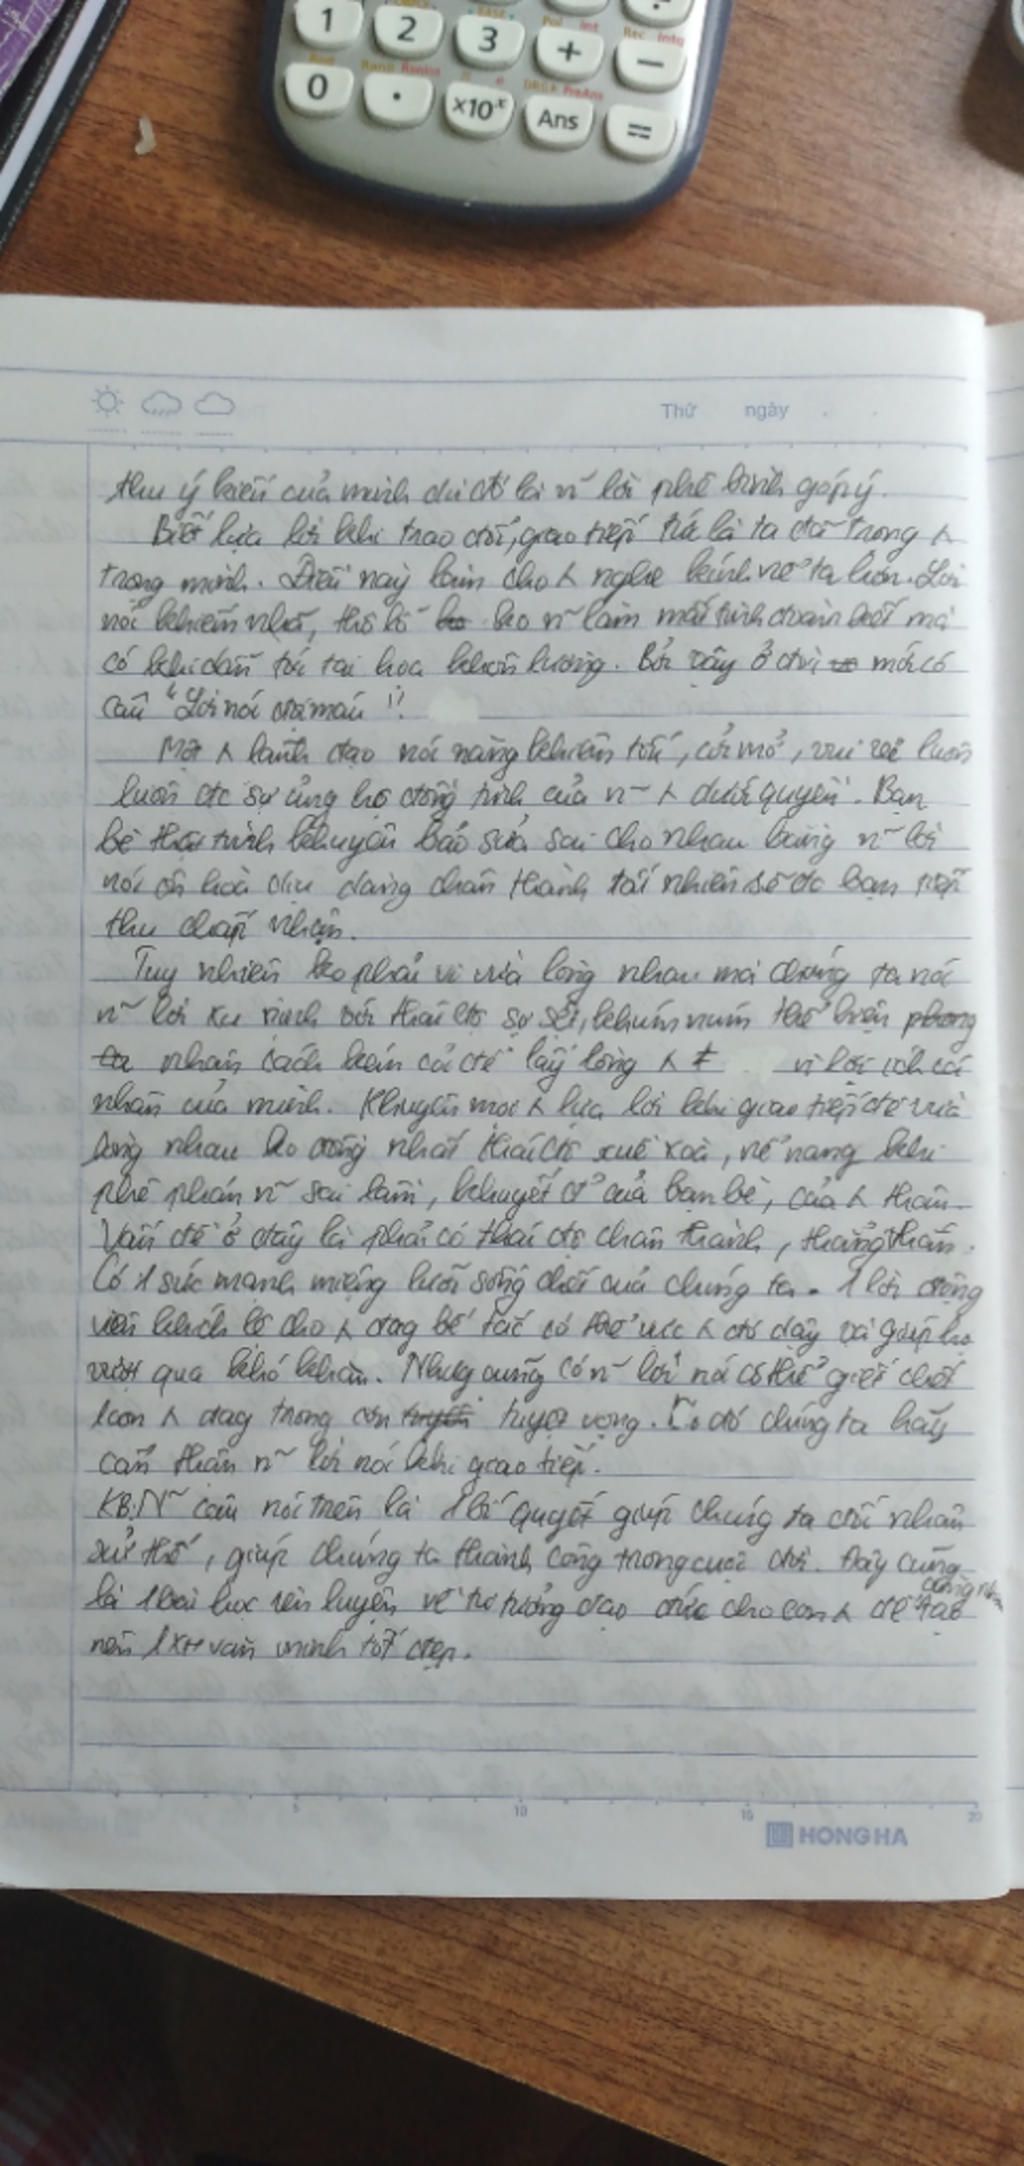 1 2 3 + −
0 · ×10ˣ Ans =
Thứ ngày
thu ý kiến của mình dù đó là n~ lời phê bình góp ý.
Biết lựa lời khi trao đổi, giao tiếp tức là ta đã trọng λ
trọng mình. Điều này làm cho λ nghe kính nể ta hơn. Lời
nói khiếm nhã, thô lỗ ko n~ làm mất tình đoàn kết mà
có khi dẫn tới tai họa khôn lường. Bởi vậy ở đời mới có
câu "Lời nói đọi máu".
Một λ lãnh đạo nói năng khiêm tốn, cởi mở, vui vẻ luôn
luôn đc sự ủng hộ đồng tình của n~ λ dưới quyền. Bạn
bè tình khuyên bảo sửa sai cho nhau bằng n~ lời
nói ôn hoà dịu dàng chân thành tất nhiên sẽ đc bạn tiếp
thu chấp nhận.
Tuy nhiên ko phải vì vừa lòng nhau mà chúng ta nói
n~ lời xu nịnh với thái độ sợ sệt, khúm núm thể hiện
nhân cách kém cỏi để lấy lòng λ vì lợi ích cá
nhân của mình. Khuyên mọi λ lựa lời khi giao tiếp để vừa
lòng nhau ko đồng nhất thái độ xuề xoà, nể nang khi
phê phán n~ sai lầm, khuyết đ' của bạn bè, của λ thân.
Vấn đề ở đây là phải có thái độ chân thành, thẳng thắn.
Có 1 sức mạnh miệng lưỡi sống chết của chúng ta. 1 lời động
viên khích lệ cho λ đag bế tắc có thể vực λ đó dậy và giúp họ
vượt qua khó khăn. Nhưg cũng có n~ lời nói có thể giết chết
1 con λ đag trong cơn tuyệt vọng. Do đó chúng ta hãy
cẩn thận n~ lời nói khi giao tiếp.
KB: N~ câu nói trên là 1 bí quyết giúp chúng ta đối nhân
xử thế, giúp chúng ta thành công trong cuộc đời. Đây cũng
là 1 bài học rèn luyện về tư tưởng đạo đức cho con λ để tạo
nên 1 XH văn minh tốt đẹp.
5 10 15 20
HONG HA